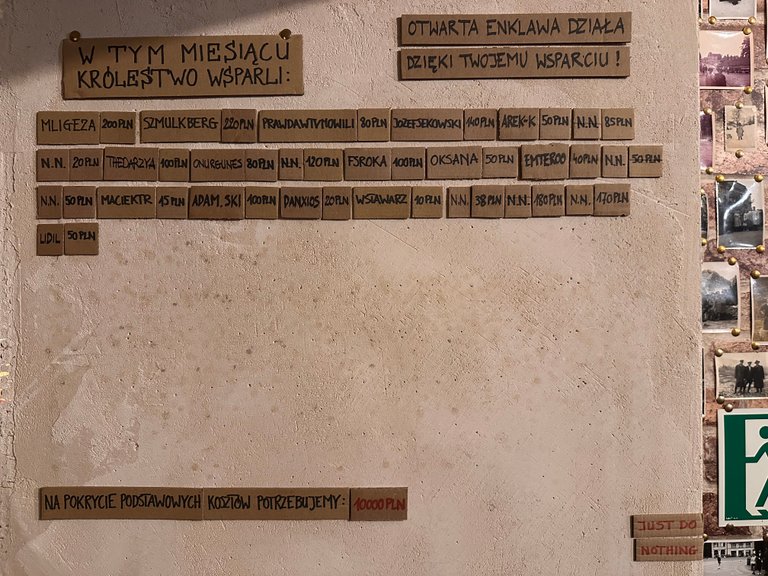 W TYM MIESIĄCU
KRÓLESTWO WSPARLI:
OTWARTA ENKLAWA DZIAŁA
DZIĘKI TWOJEMU WSPARCIU!
MLIGEZA 200 PLN SZMULKBERG 220 PLN PRAWDAWTVMOWILI 80 PLN JOZEFSEKOWSKI 140 PLN AREK-K 50 PLN N.N. 85 PLN
N.N. 20 PLN THEDARZYA 100 PLN ONURGUNES 80 PLN N.N. 120 PLN FSROKA 100 PLN OKSANA 50 PLN EMTEROO 40 PLN N.N. 50 PLN
N.N. 50 PLN MACIEKTR 15 PLN ADAM.SKI 100 PLN DANXIOS 20 PLN WSTAWARZ 10 PLN N.N. 38 PLN N.N. 180 PLN N.N. 170 PLN
LIDIL 50 PLN
NA POKRYCIE PODSTAWOWYCH KOSZTÓW POTRZEBUJEMY: 10000 PLN
JUST DO
NOTHING